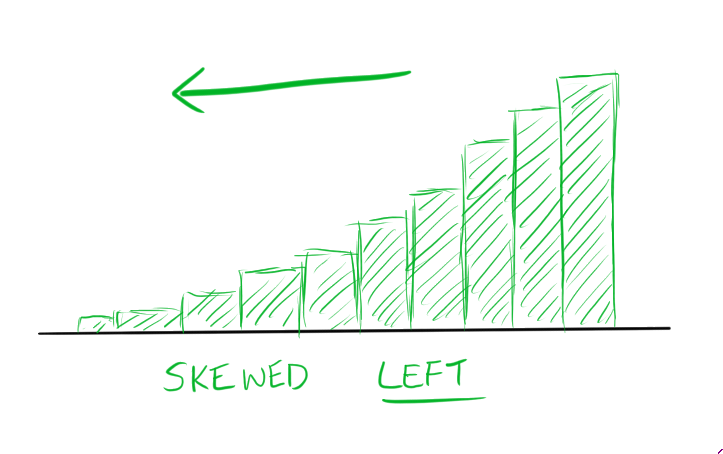 SKEWED LEFT